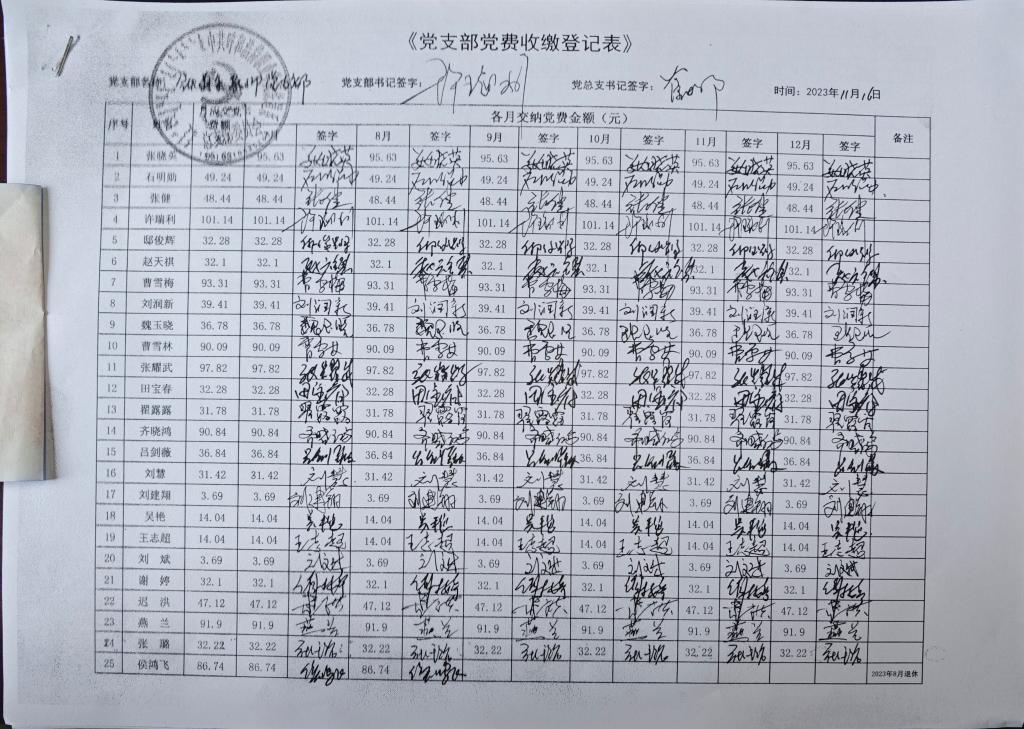 《党支部党费收缴登记表》
党支部名称： 党支部书记签字： 党总支书记签字： 时间：2023年11月16日
序号 各月交纳党费金额（元） 备注
签字 8月 签字 9月 签字 10月 签字 11月 签字 12月 签字
1 张晓英 95.63 张晓英 95.63 张晓英 95.63 张晓英 95.63 张晓英 95.63 张晓英 95.63 张晓英
2 石明勋 49.24 49.24 石明勋 49.24 石明勋 49.24 石明勋 49.24 石明勋 49.24 石明勋 49.24 石明勋
3 张健 48.44 48.44 张健 48.44 张健 48.44 张健 48.44 张健 48.44 张健 48.44 张健
4 许瑞利 101.14 101.14 许瑞利 101.14 许瑞利 101.14 许瑞利 101.14 许瑞利 101.14 许瑞利 101.14 许瑞利
5 邸俊辉 32.28 32.28 邸俊辉 32.28 邸俊辉 32.28 邸俊辉 32.28 邸俊辉 32.28 邸俊辉 32.28 邸俊辉
6 赵天祺 32.1 32.1 赵天祺 32.1 赵天祺 32.1 赵天祺 32.1 赵天祺 32.1 赵天祺 32.1 赵天祺
7 曹雪梅 93.31 93.31 曹雪梅 93.31 曹雪梅 93.31 曹雪梅 93.31 曹雪梅 93.31 曹雪梅 93.31 曹雪梅
8 刘润新 39.41 39.41 刘润新 39.41 刘润新 39.41 刘润新 39.41 刘润新 39.41 刘润新 39.41 刘润新
9 魏玉晓 36.78 36.78 魏玉晓 36.78 魏玉晓 36.78 魏玉晓 36.78 魏玉晓 36.78 魏玉晓 36.78 魏玉晓
10 曹雪林 90.09 90.09 90.09 90.09 90.09 90.09 90.09
11 张耀武 97.82 97.82 张耀武 97.82 张耀武 97.82 张耀武 97.82 张耀武 97.82 张耀武 97.82 张耀武
12 田宝春 32.28 32.28 田宝春 32.28 田宝春 32.28 田宝春 32.28 田宝春 32.28 田宝春 32.28 田宝春
13 翟露露 31.78 31.78 翟露露 31.78 翟露露 31.78 翟露露 31.78 翟露露 31.78 翟露露 31.78 翟露露
14 齐晓鸿 90.84 90.84 齐晓鸿 90.84 齐晓鸿 90.84 齐晓鸿 90.84 齐晓鸿 90.84 齐晓鸿 90.84 齐晓鸿
15 吕剑薇 36.84 36.84 吕剑薇 36.84 吕剑薇 36.84 吕剑薇 36.84 吕剑薇 36.84 吕剑薇 36.84 吕剑薇
16 刘慧 31.42 31.42 刘慧 31.42 刘慧 31.42 刘慧 31.42 刘慧 31.42 刘慧 31.42 刘慧
17 刘建翔 3.69 3.69 刘建翔 3.69 刘建翔 3.69 刘建翔 3.69 刘建翔 3.69 刘建翔 3.69 刘建翔
18 吴艳 14.04 14.04 吴艳 14.04 吴艳 14.04 吴艳 14.04 吴艳 14.04 吴艳 14.04 吴艳
19 王志超 14.04 14.04 王志超 14.04 王志超 14.04 王志超 14.04 王志超 14.04 王志超 14.04 王志超
20 刘 斌 3.69 3.69 刘斌 3.69 刘斌 3.69 刘斌 3.69 刘斌 3.69 刘斌 3.69 刘斌
21 谢 婷 32.1 32.1 谢婷 32.1 谢婷 32.1 谢婷 32.1 谢婷 32.1 谢婷 32.1 谢婷
22 迟 洪 47.12 47.12 迟洪 47.12 迟洪 47.12 迟洪 47.12 迟洪 47.12 迟洪 47.12 迟洪
23 燕 兰 91.9 91.9 燕兰 91.9 燕兰 91.9 燕兰 91.9 燕兰 91.9 燕兰 91.9 燕兰
24 张 璐 32.22 32.22 张璐 32.22 张璐 32.22 张璐 32.22 张璐 32.22 张璐 32.22 张璐
25 侯鸿飞 86.74 86.74 侯鸿飞 86.74 侯鸿飞 2023年8月退休